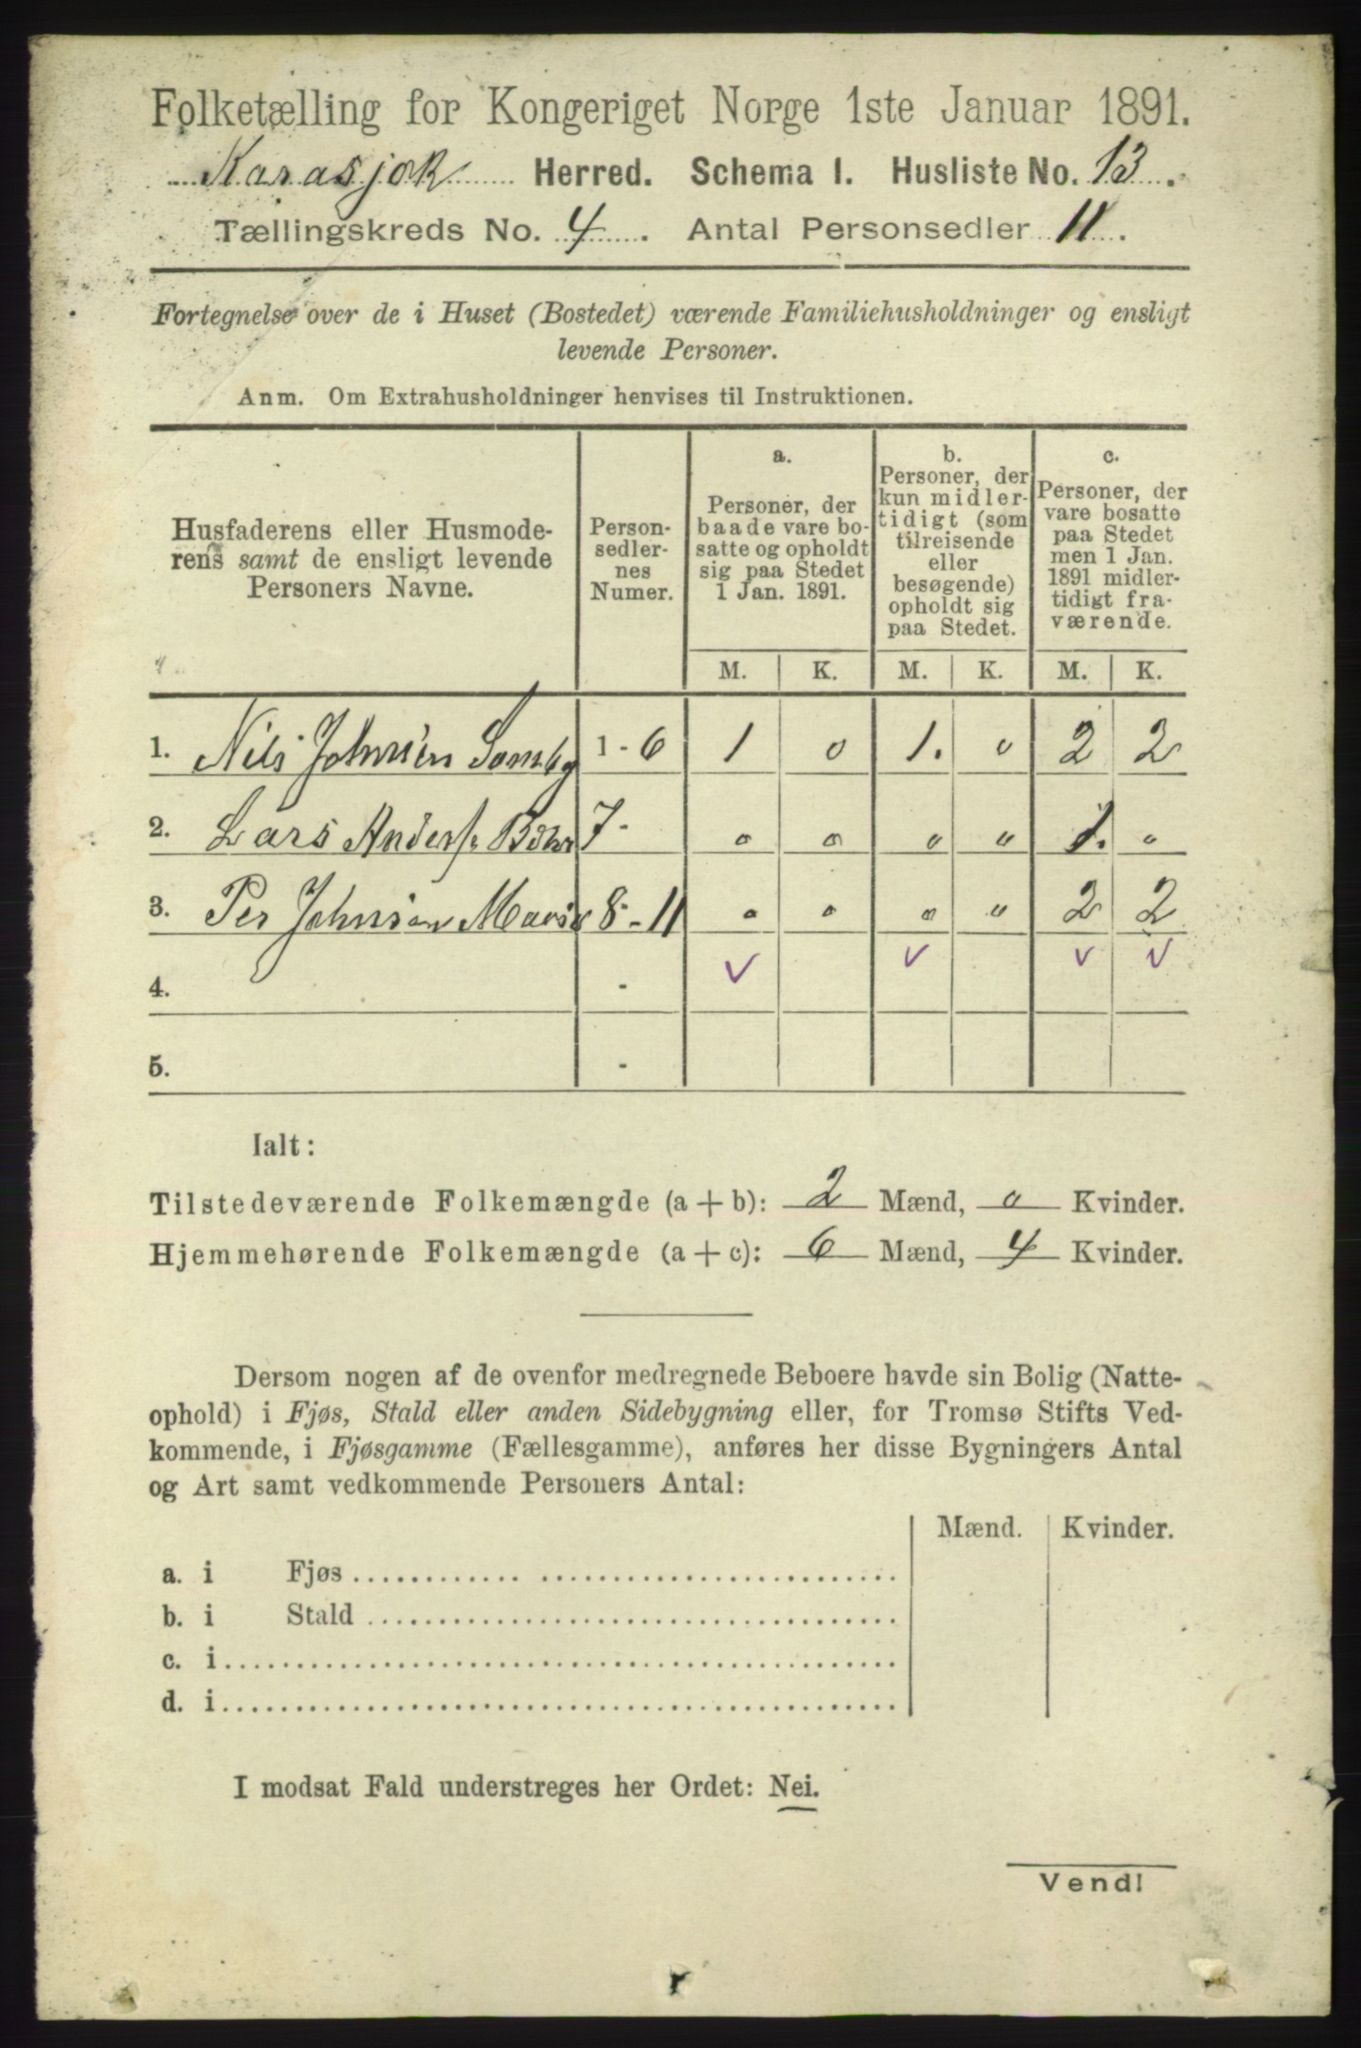 Folketælling for Kongeriget Norge 1ste Januar 1891.
Karasjok Herred. Schema I. Husliste No. 13.
Tællingskreds No. 4. Antal Personsedler 11.
Fortegnelse over de i Huset (Bostedet) værende Familiehusholdninger og ensligt
levende Personer.
Anm. Om Extrahusholdninger henvises til Instruktionen.
Husfaderens eller Husmode-
rens samt de ensligt levende
Personers Navne.
Person-
sedler-
nes
Numer.
a.
Personer, der
baade vare bo-
satte og opholdt
sig paa Stedet
1 Jan. 1891.
b.
Personer, der
kun midler-
tidigt (som
tilreisende
eller
besøgende)
opholdt sig
paa Stedet.
c.
Personer, der
vare bosatte
paa Stedet
men 1 Jan.
1891 midler-
tidigt fra-
værende.
M. K. M. K. M. K.
1. Nils Johnsen Somby 1 - 6 1 0 1. 0 2 2
2. Lars Anders. 7 - 0 0 0 0 1. 0
3. Per Johnsen 8 - 11 0 0 0 0 2 2
4. - v v v v
5. -
Ialt:
Tilstedeværende Folkemængde (a + b): 2 Mænd, 0 Kvinder.
Hjemmehørende Folkemængde (a + c): 6 Mænd, 4 Kvinder.
Dersom nogen af de ovenfor medregnede Beboere havde sin Bolig (Natte-
ophold) i Fjøs, Stald eller anden Sidebygning eller, for Tromsø Stifts Ved-
kommende, i Fjøsgamme (Fællesgamme), anføres her disse Bygningers Antal
og Art samt vedkommende Personers Antal:
Mænd. Kvinder.
a. i Fjøs
b. i Stald
c. i
d. i
I modsat Fald understreges her Ordet: Nei.
Vend!